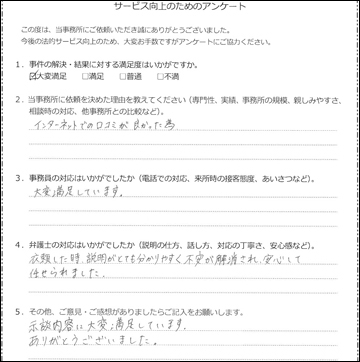 サービス向上のためのアンケート
この度は、当事務所にご依頼いただき誠にありがとうございました。
今後の法的サービス向上のため、大変お手数ですがアンケートにご協力ください。
1．事件の解決・結果に対する満足度はいかがですか。
☑大変満足 □満足 □普通 □不満
2．当事務所に依頼を決めた理由を教えてください（専門性、実績、事務所の規模、親しみやすさ、
相談時の対応、他事務所との比較など）。
インターネットでの口コミが良かった為
3．事務員の対応はいかがでしたか（電話での対応、来所時の接客態度、あいさつなど）。
大変満足しています。
4．弁護士の対応はいかがでしたか（説明の仕方、話し方、対応の丁寧さ、安心感など）。
依頼した時、説明がとても分かりやすく不安が解消され、安心して
任せられました。
5．その他、ご意見・ご感想がありましたらご記入をお願いします。
示談内容に大変満足しています。
ありがとうございました。